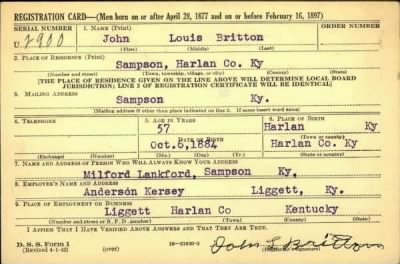 REGISTRATION CARD—(Men born on or after April 28, 1877 and on or before February 16, 1897)
SERIAL NUMBER 1. NAME (Print) ORDER NUMBER
U 2900 John Louis Britton
(First) (Middle) (Last)
2. PLACE OF RESIDENCE (Print)
Sampson, Harlan Co. Ky
(Number and street) (Town, township, village, or city) (County) (State)
[THE PLACE OF RESIDENCE GIVEN ON THE LINE ABOVE WILL DETERMINE LOCAL BOARD
JURISDICTION; LINE 2 OF REGISTRATION CERTIFICATE WILL BE IDENTICAL]
3. MAILING ADDRESS
Sampson Ky.
[Mailing address if other than place indicated on line 2. If same insert word same]
4. TELEPHONE 5. AGE IN YEARS 6. PLACE OF BIRTH
57 Harlan Ky
DATE OF BIRTH (Town or county)
Oct.5,1884 Harlan Co. Ky
(Exchange) (Number) (Mo.) (Day) (Yr.) (State or country)
7. NAME AND ADDRESS OF PERSON WHO WILL ALWAYS KNOW YOUR ADDRESS
Milford Lankford, Sampson Ky,
8. EMPLOYER'S NAME AND ADDRESS
Anderson Kersey Liggett, Ky.
9. PLACE OF EMPLOYMENT OR BUSINESS
Liggett Harlan Co Kentucky
(Number and street or R. F. D. number) (Town) (County) (State)
I AFFIRM THAT I HAVE VERIFIED ABOVE ANSWERS AND THAT THEY ARE TRUE.
D. S. S. Form 1
(Revised 4-1-42) (over) 16—21630-2 John L Britton